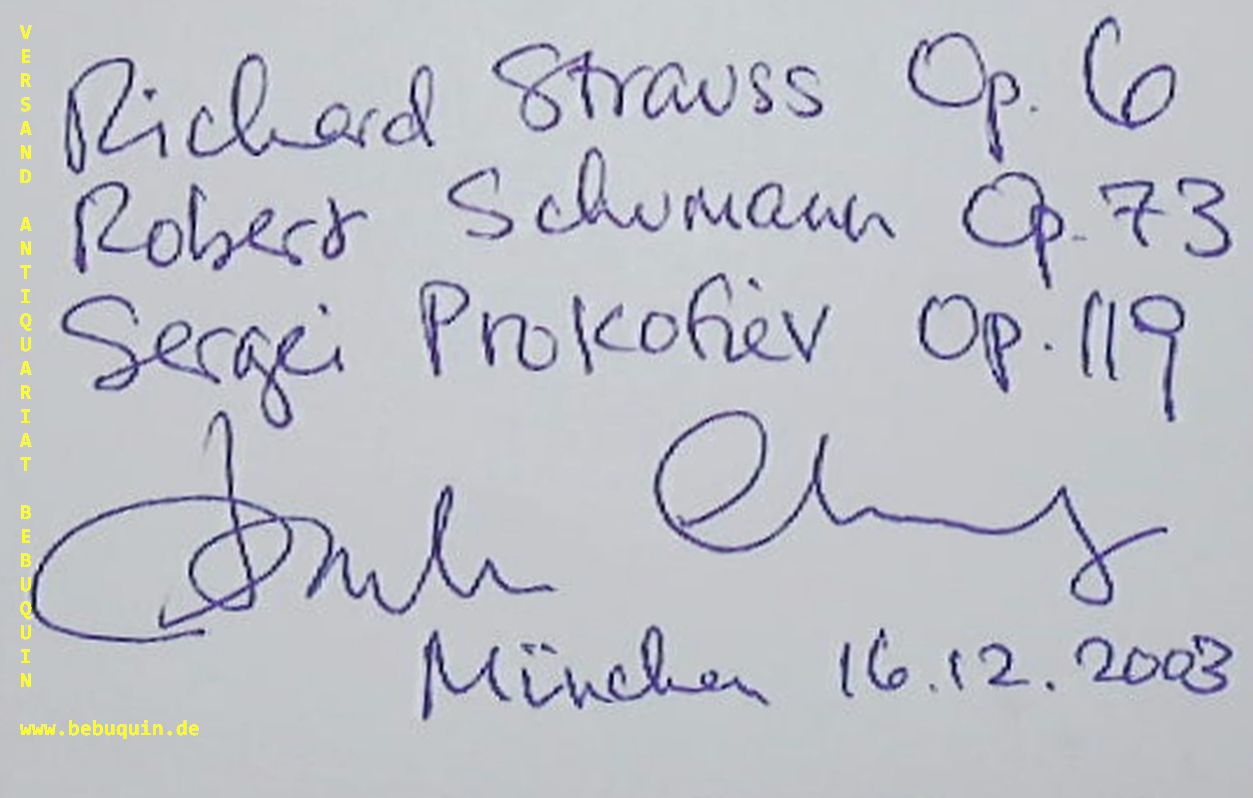 Richard Strauss Op. 6
Robert Schumann Op. 73
Sergei Prokofiev Op. 119
München 16.12.2003
VERSAND ANTIQUARIAT BEBUQUIN
www.bebuquin.de